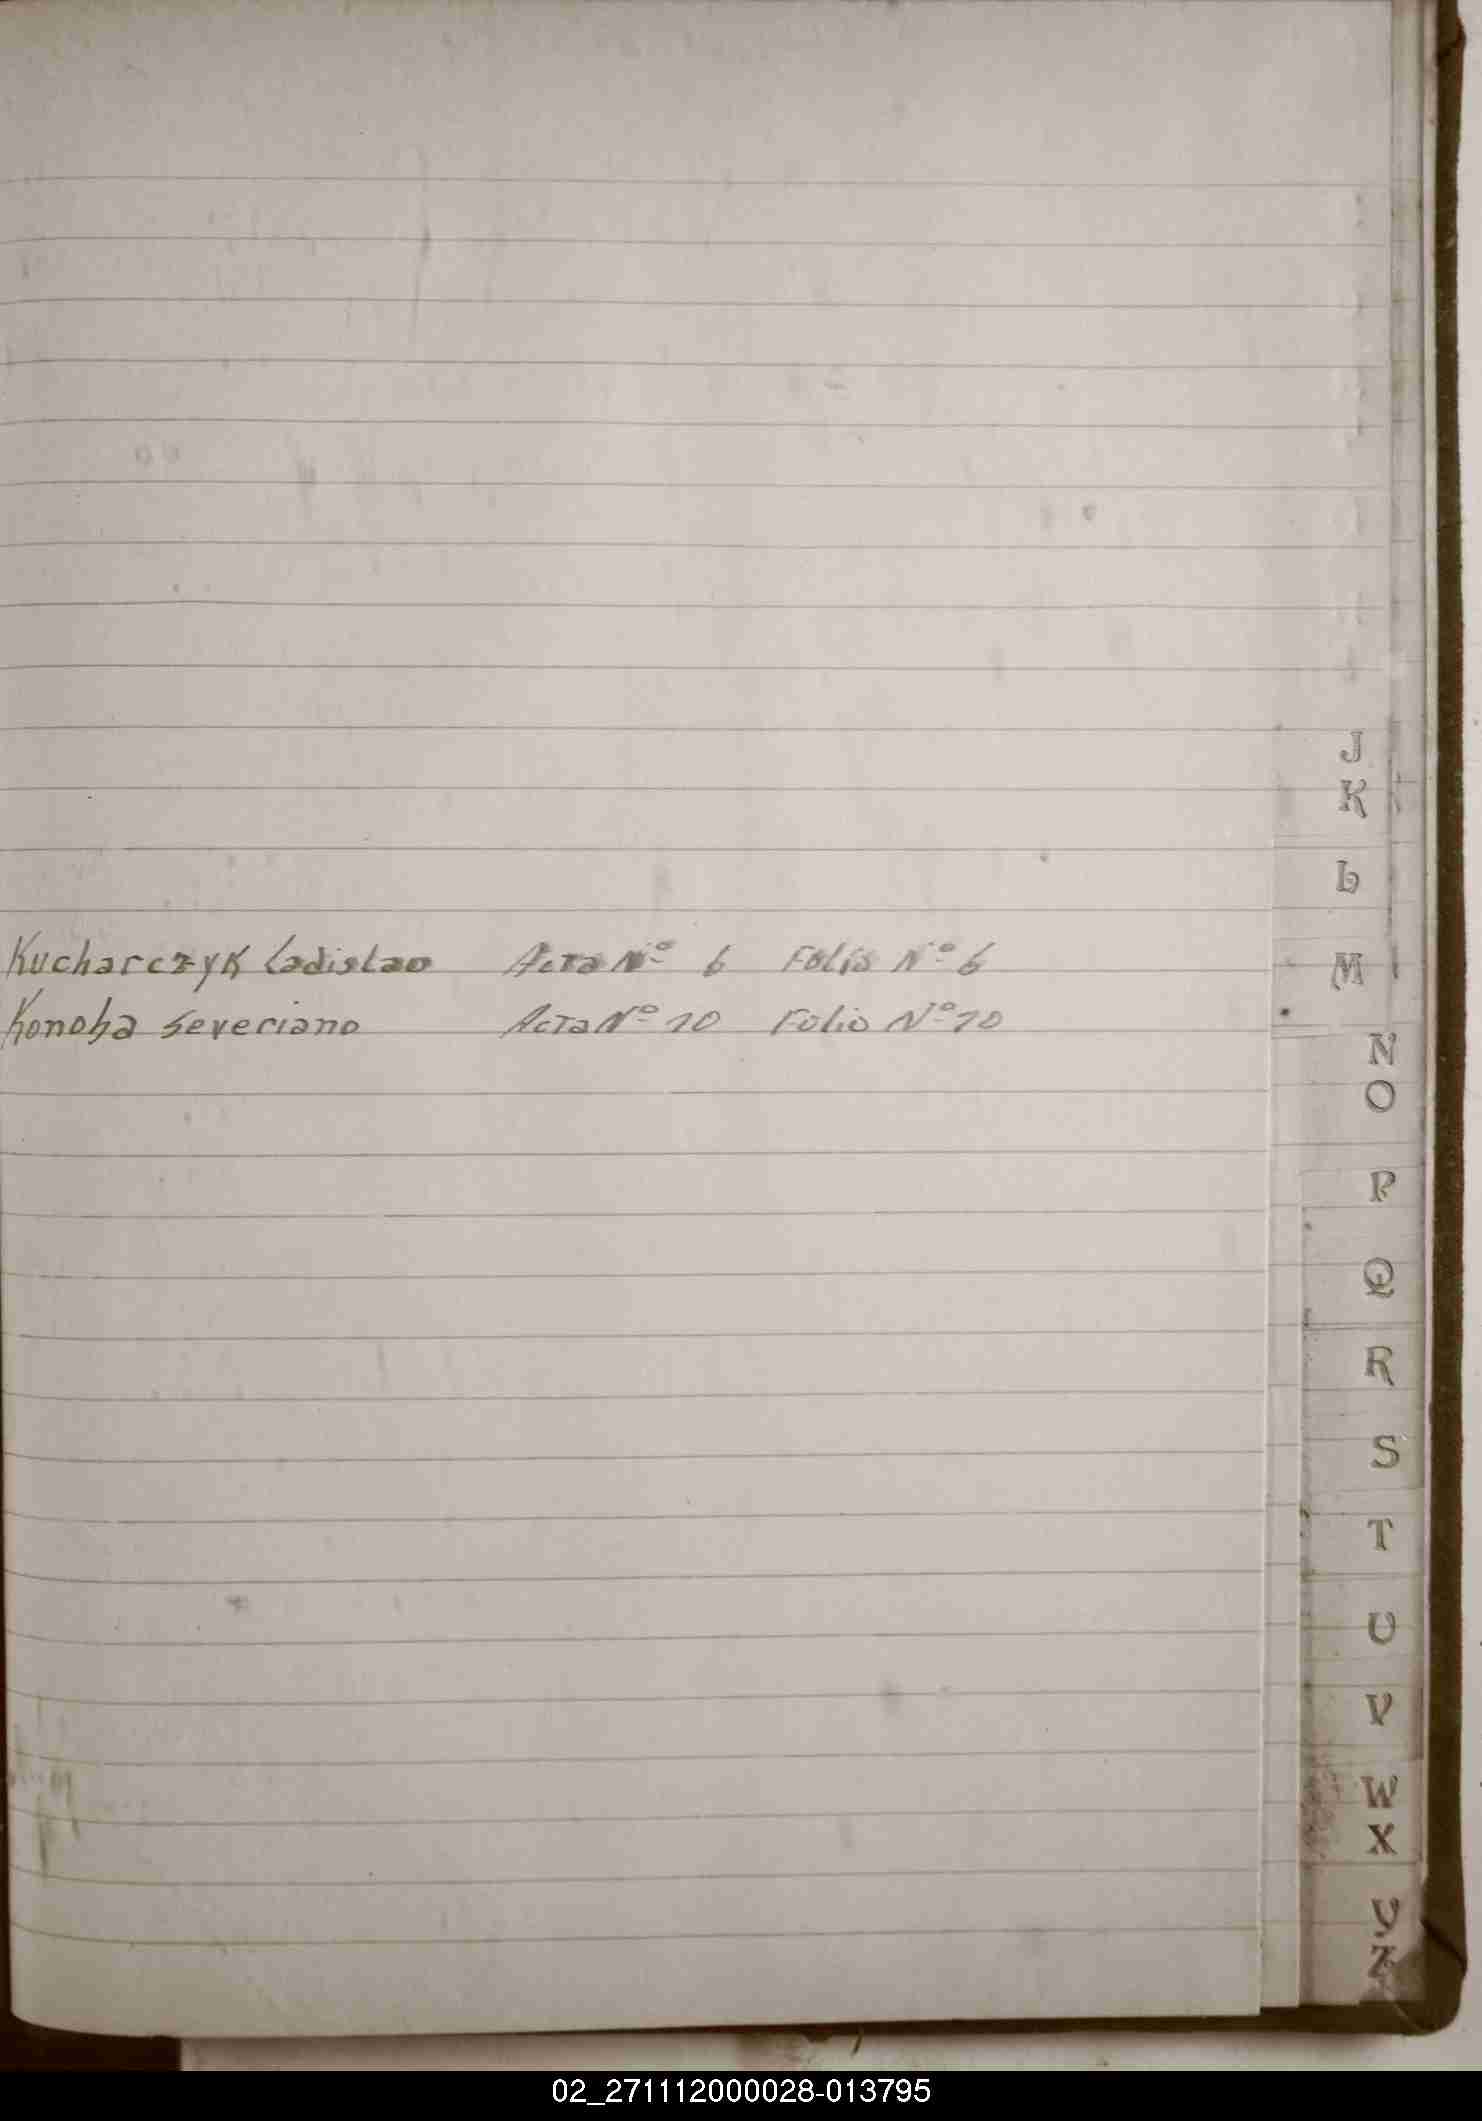 J
K
L
Kucharczyk Ladislao Acta Nº 6 Folio Nº 6
M
Konoba Severiano Acta Nº 10 Folio Nº 10
N
O
P
Q
R
S
T
U
V
W
X
Y
Z
02_271112000028-013795